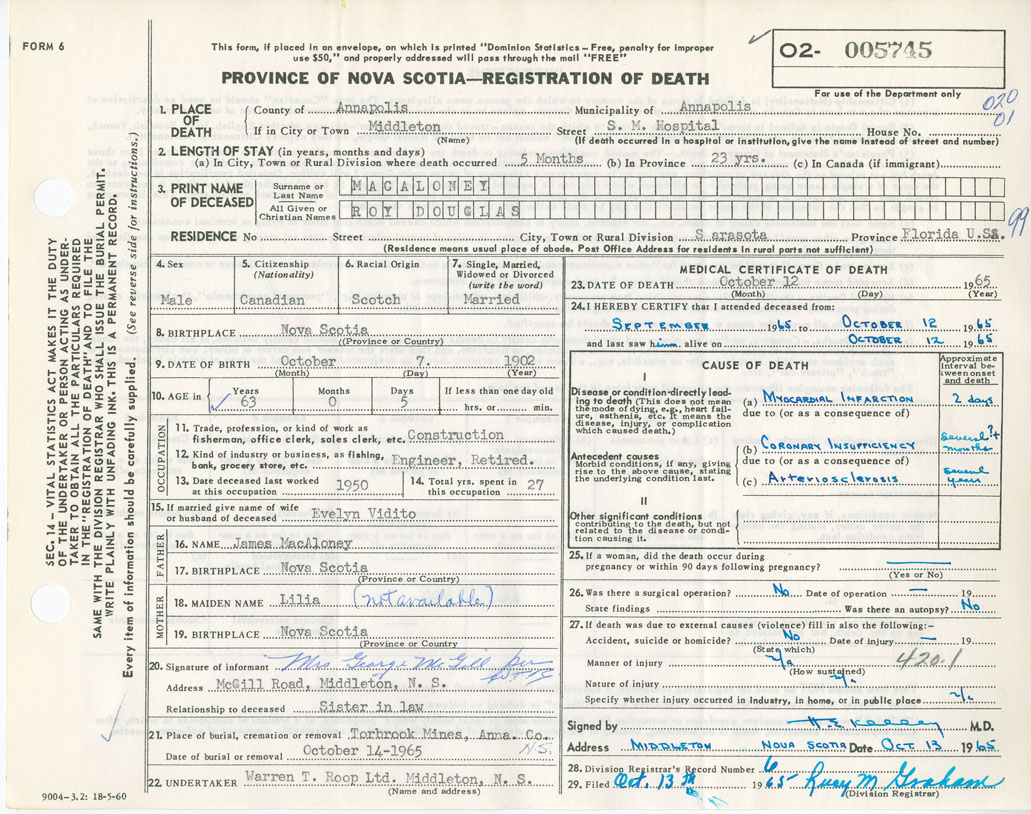 FORM 6
This form, if placed in an envelope, on which is printed "Dominion Statistics—Free, penalty for improper
use $50," and properly addressed will pass through the mail "FREE"
O2- 005745
PROVINCE OF NOVA SCOTIA—REGISTRATION OF DEATH
For use of the Department only
020
01
1. PLACE OF DEATH
County of Annapolis Municipality of Annapolis
If in City or Town Middleton Street S. M. Hospital House No.
(Name) (If death occurred in a hospital or institution, give the name instead of street and number)
2. LENGTH OF STAY (in years, months and days)
(a) In City, Town or Rural Division where death occurred 5 Months (b) In Province 23 yrs. (c) In Canada (if immigrant)
3. PRINT NAME OF DECEASED
Surname or Last Name MACALONEY
All Given or Christian Names ROY DOUGLAS
99
RESIDENCE No Street City, Town or Rural Division Sarasota Province Florida U.SA.
(Residence means usual place of abode. Post Office Address for residents in rural parts not sufficient)
4. Sex
Male
5. Citizenship
(Nationality)
Canadian
6. Racial Origin
Scotch
7. Single, Married,
Widowed or Divorced
(write the word)
Married
8. BIRTHPLACE Nova Scotia
(Province or Country)
9. DATE OF BIRTH October 7. 1902
(Month) (Day) (Year)
10. AGE in
Years 63
Months 0
Days 5
If less than one day old
hrs. or min.
OCCUPATION
11. Trade, profession, or kind of work as
fisherman, office clerk, sales clerk, etc. Construction
12. Kind of industry or business, as fishing,
bank, grocery store, etc. Engineer, Retired.
13. Date deceased last worked
at this occupation 1950
14. Total yrs. spent in
this occupation 27
15. If married give name of wife
or husband of deceased Evelyn Vidito
FATHER
16. NAME James MacAloney
17. BIRTHPLACE Nova Scotia
(Province or Country)
MOTHER
18. MAIDEN NAME Lilia (not available)
19. BIRTHPLACE Nova Scotia
(Province or Country
20. Signature of informant Mrs George McGill per
Address McGill Road, Middleton, N. S.
Relationship to deceased Sister in law
21. Place of burial, cremation or removal Torbrook Mines, Anna. Co.
N.S.
Date of burial or removal October 14-1965
22. UNDERTAKER Warren T. Roop Ltd. Middleton, N. S.
(Name and address)
9004-3.2: 18-5-60
MEDICAL CERTIFICATE OF DEATH
23. DATE OF DEATH October 12 1965
(Month) (Day) (Year)
24. I HEREBY CERTIFY that I attended deceased from:
SEPTEMBER 1965 to OCTOBER 12 1965
and last saw him alive on OCTOBER 12 1965
CAUSE OF DEATH
Approximate
interval be-
tween onset
and death
I
Disease or condition-directly lead-
ing to death (This does not mean
the mode of dying, e.g., heart fail-
ure, asthenia, etc. It means the
disease, injury, or complication
which caused death.)
(a) MYOCARDIAL INFARCTION 2 days
due to (or as a consequence of)
Antecedent causes
Morbid conditions, if any, giving
rise to the above cause, stating
the underlying condition last.
(b) CORONARY INSUFFICIENCY several months
due to (or as a consequence of)
(c) Arteriosclerosis several years
II
Other significant conditions
contributing to the death, but not
related to the disease or condi-
tion causing it.
25. If a woman, did the death occur during
pregnancy or within 90 days following pregnancy?
(Yes or No)
26. Was there a surgical operation? No Date of operation — 19
State findings Was there an autopsy? No
27. If death was due to external causes (violence) fill in also the following:-
Accident, suicide or homicide? No Date of injury — 19
(State which)
420.1
Manner of injury n/a
(How sustained)
Nature of injury n/a
Specify whether injury occurred in industry, in home, or in public place n/a
Signed by H.E. Kelley M.D.
Address MIDDLETON NOVA SCOTIA Date OCT 13 1965
28. Division Registrar's Record Number 6
29. Filed Oct. 13th 1965 Lucy M Graham
(Division Registrar)
SEC. 14 – VITAL STATISTICS ACT MAKES IT THE DUTY
OF THE UNDERTAKER OR PERSON ACTING AS UNDER-
TAKER TO OBTAIN ALL THE PARTICULARS REQUIRED
IN THE "REGISTRATION OF DEATH" AND TO FILE THE
SAME WITH THE DIVISION REGISTRAR WHO SHALL ISSUE THE BURIAL PERMIT.
WRITE PLAINLY WITH UNFADING INK. THIS IS A PERMANENT RECORD.
Every item of information should be carefully supplied. (See reverse side for instructions.)